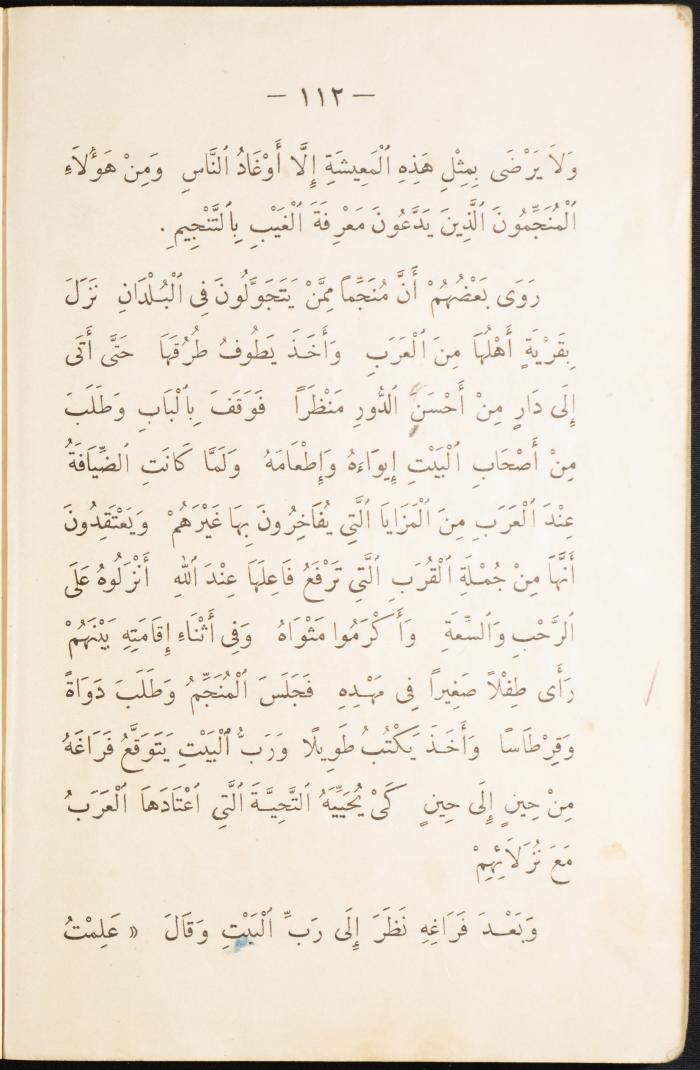 — ١١٢ —
وَلَا يَرْضَى بِمِثْلِ هَذِهِ ٱلْمَعِيشَةِ إِلَّا أَوْغَادُ ٱلنَّاسِ وَمِنْ هَؤُلَاءِ
ٱلْمُنَجِّمُونَ ٱلَّذِينَ يَدَّعُونَ مَعْرِفَةَ ٱلْغَيْبِ بِٱلتَّنْجِيمِ .
رَوَى بَعْضُهُمْ أَنَّ مُنَجِّماً مِمَّنْ يَتَجَوَّلُونَ فِي ٱلْبُلْدَانِ نَزَلَ
بِقَرْيَةٍ أَهْلُهَا مِنَ ٱلْعَرَبِ وَأَخَذَ يَطُوفُ طُرُقَهَا حَتَّى أَتَى
إِلَى دَارٍ مِنْ أَحْسَنِ ٱلدُّورِ مَنْظَرَاً فَوَقَفَ بِٱلْبَابِ وَطَلَبَ
مِنْ أَصْحَابِ ٱلْبَيْتِ إِيوَاءَهُ وَإِطْعَامَهُ وَلَمَّا كَانَتِ ٱلضِّيَافَةُ
عِنْدَ ٱلْعَرَبِ مِنَ ٱلْمَزَايَا ٱلَّتِي يُفَاخِرُونَ بِهَا غَيْرَهُمْ وَيَعْتَقِدُونَ
أَنَّهَا مِنْ جُمْلَةِ ٱلْقُرَبِ ٱلَّتِي تَرْفَعُ فَاعِلَهَا عِنْدَ ٱللهِ أَنْزَلُوهُ عَلَى
ٱلرَّحْبِ وَٱلسِّعَةِ وَأَكْرَمُوا مَثْوَاهُ وَفِي أَثْنَاءِ إِقَامَتِهِ بَيْنَهُمْ
رَأَى طِفْلاً صَغِيراً فِي مَهْدِهِ فَجَلَسَ ٱلْمُنَجِّمُ وَطَلَبَ دَوَاةً
وَقِرْطَاسًا وَأَخَذَ يَكْتُبُ طَوِيلًا وَرَبُّ ٱلْبَيْتِ يَتَوَقَّعُ فَرَاغَهُ
مِنْ حِينٍ إِلَى حِينٍ كَيْ يُحَيِّيَهُ ٱلتَّحِيَّةَ ٱلَّتِي ٱعْتَادَهَا ٱلْعَرَبُ
مَعَ نُزَلَائِهِمْ
وَبَعْدَ فَرَاغِهِ نَظَرَ إِلَى رَبِّ ٱلْبَيْتِ وَقَالَ « عَلِمْتُ